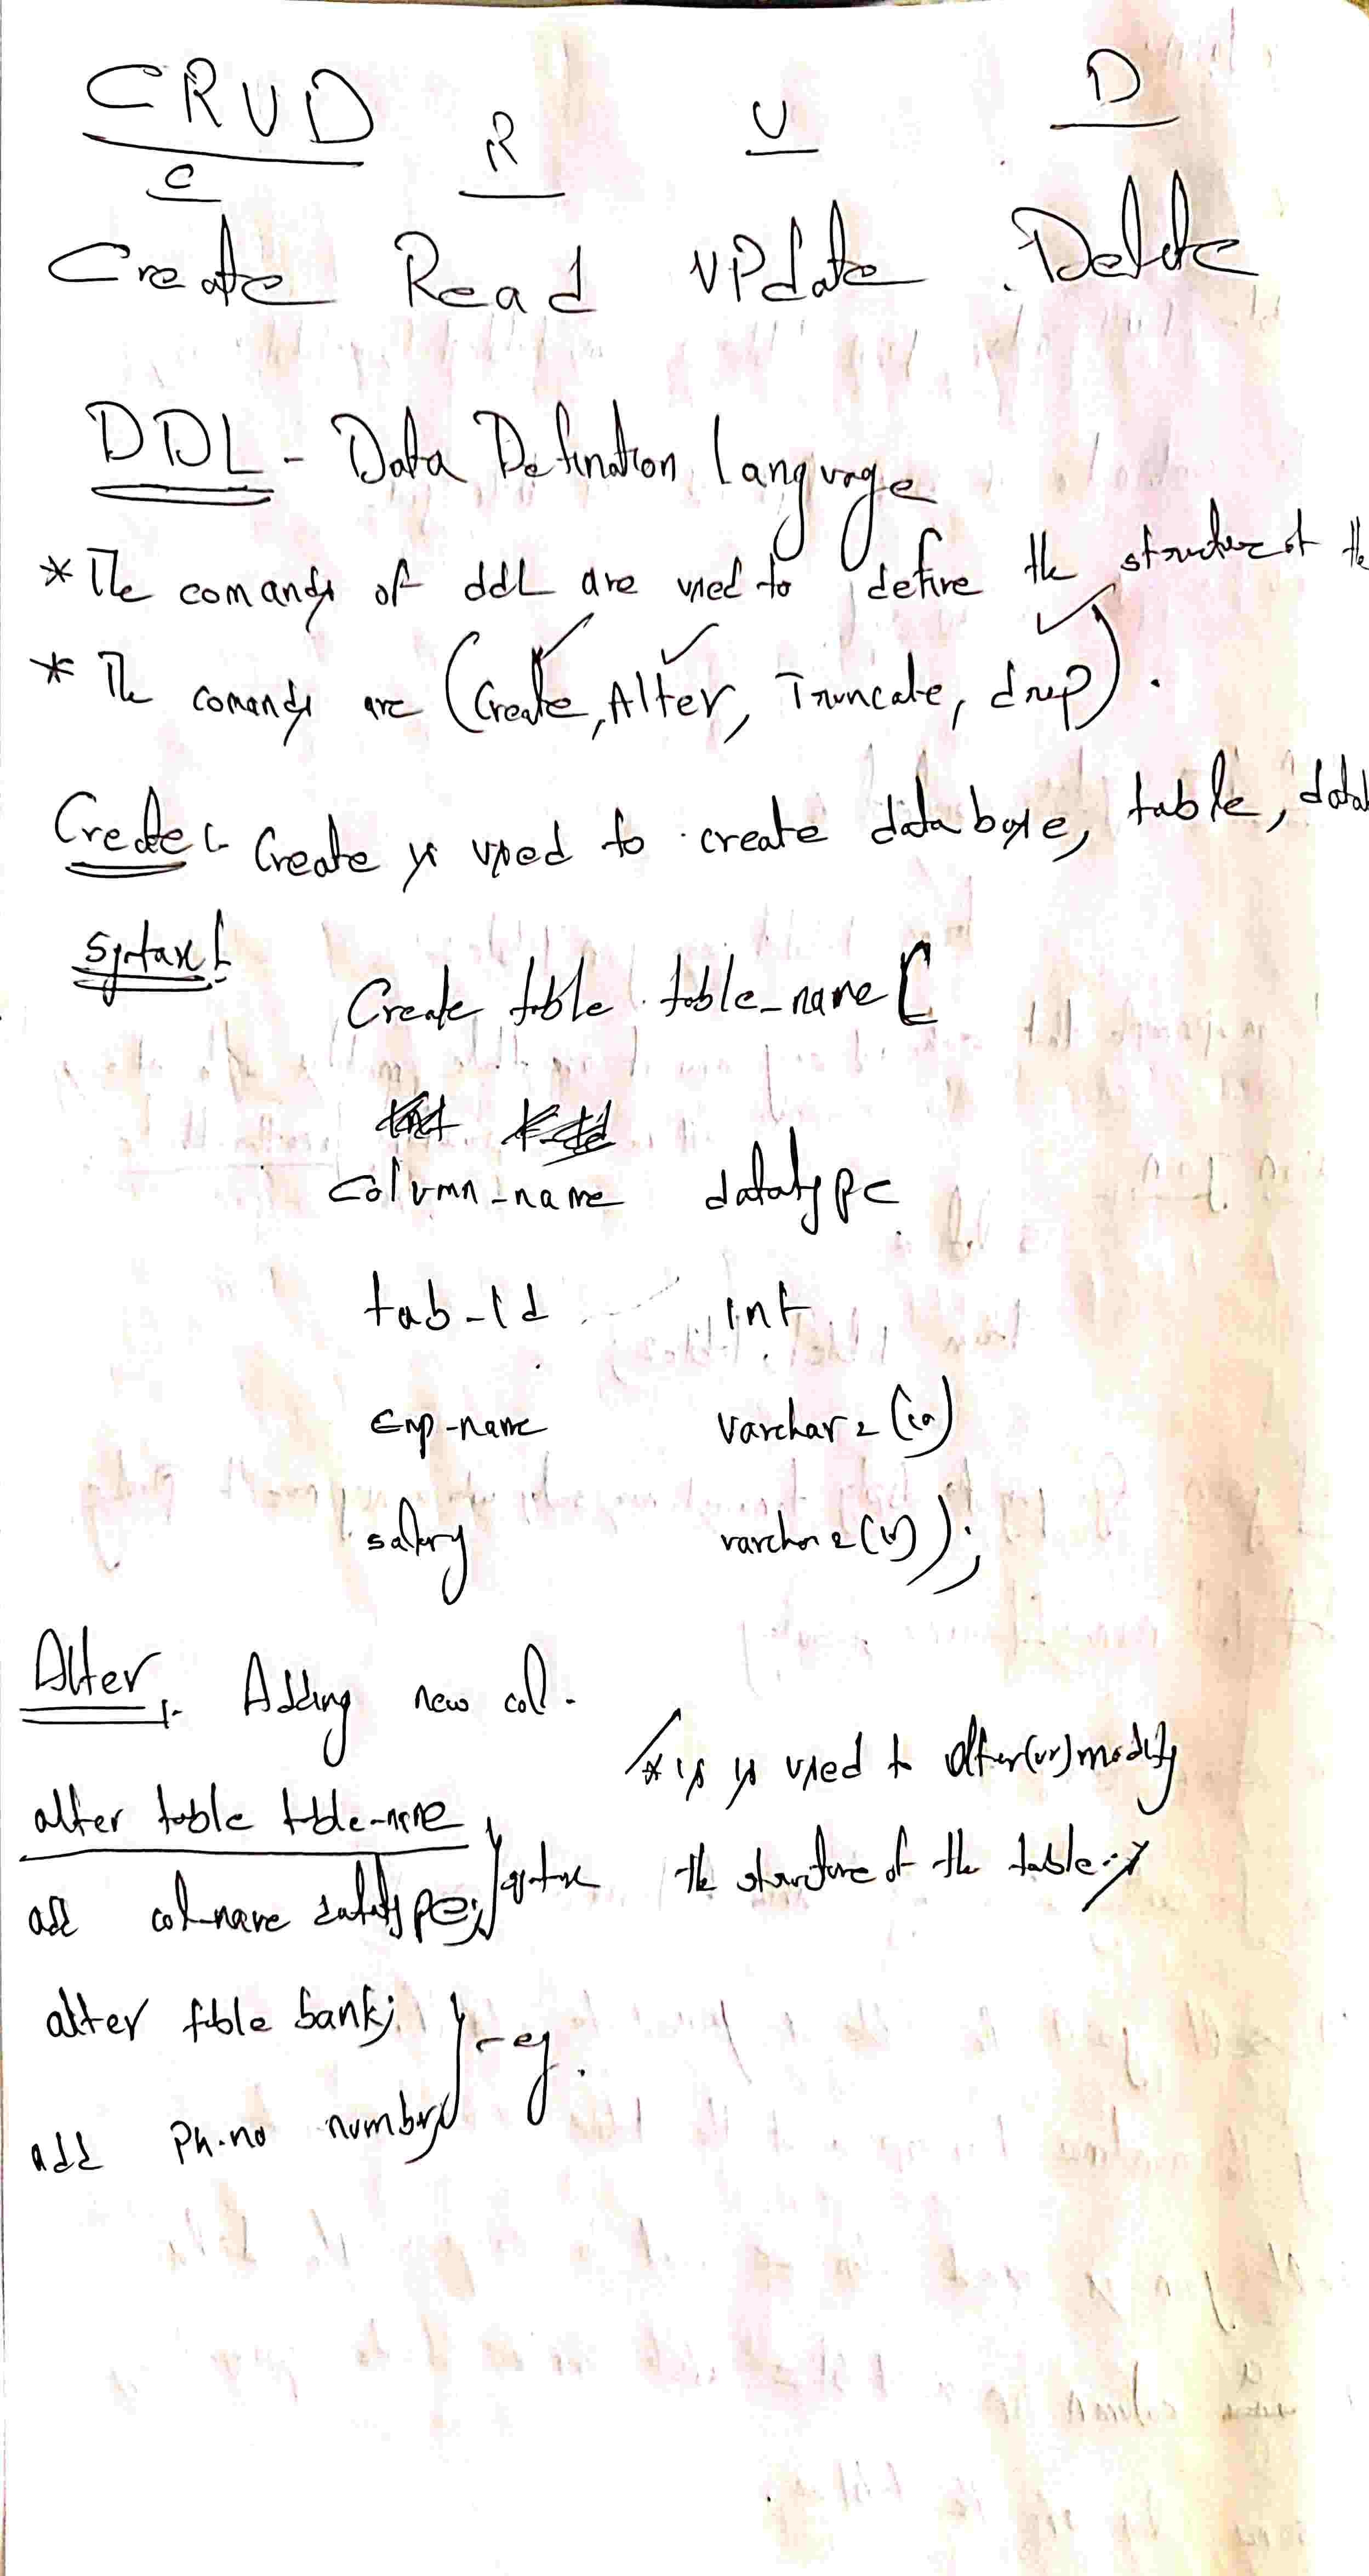 CRUD
C R U D
Create Read UPdate Delete
DDL - Data Defination Language
* The comands of ddL are used to define the structure of the
* The comands are (Create, Alter, Truncate, drop).
Create :- Create is used to create database, table, data
Syntax :-
Create table table_name (
column-name datatype
tab-id int
Emp-name varchar2 (10)
salary varchar2(10) );
Alter :- Adding new col.
* is used to alter(or) modify
alter table table-name
the structure of the table. *
add col-name datatype; syntax
alter table bank;
- eg.
add Ph.no number